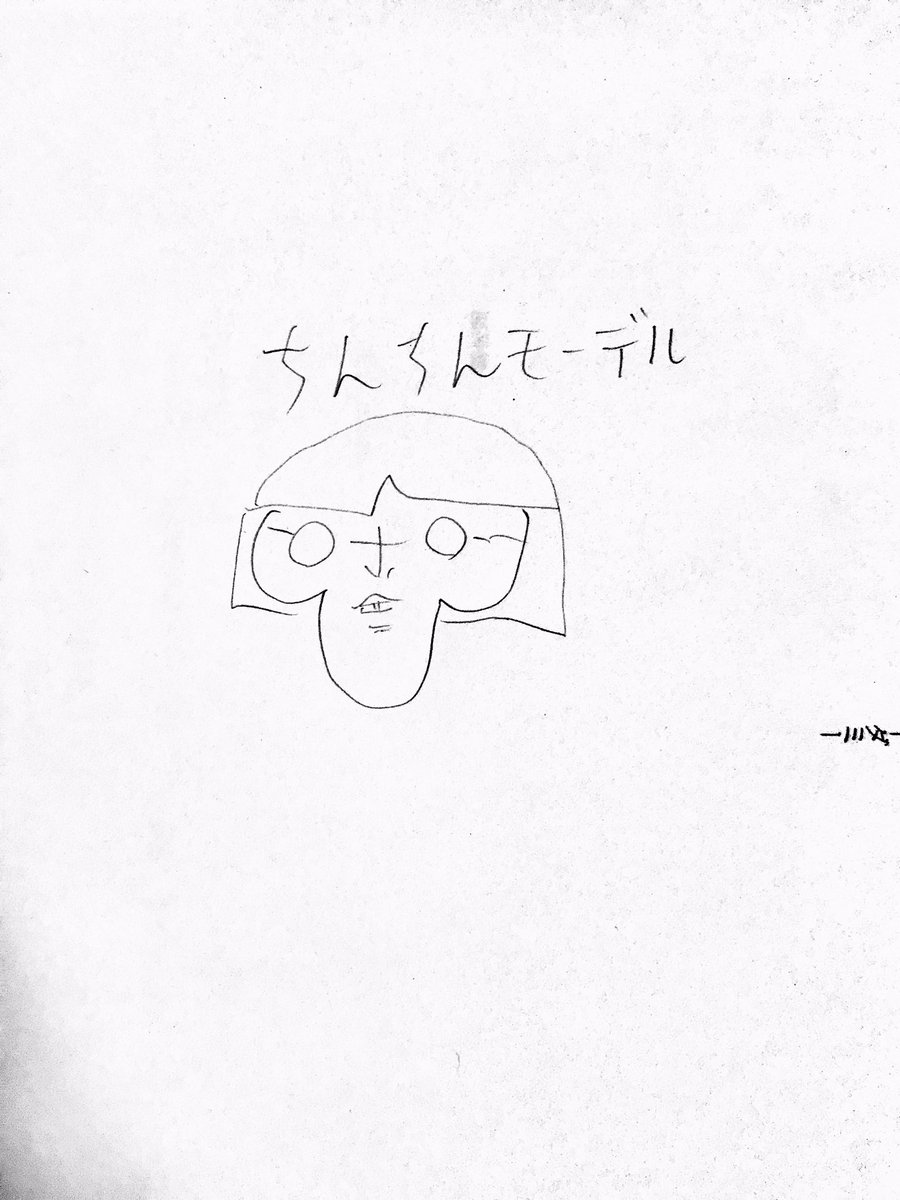 ちんちんモーデル